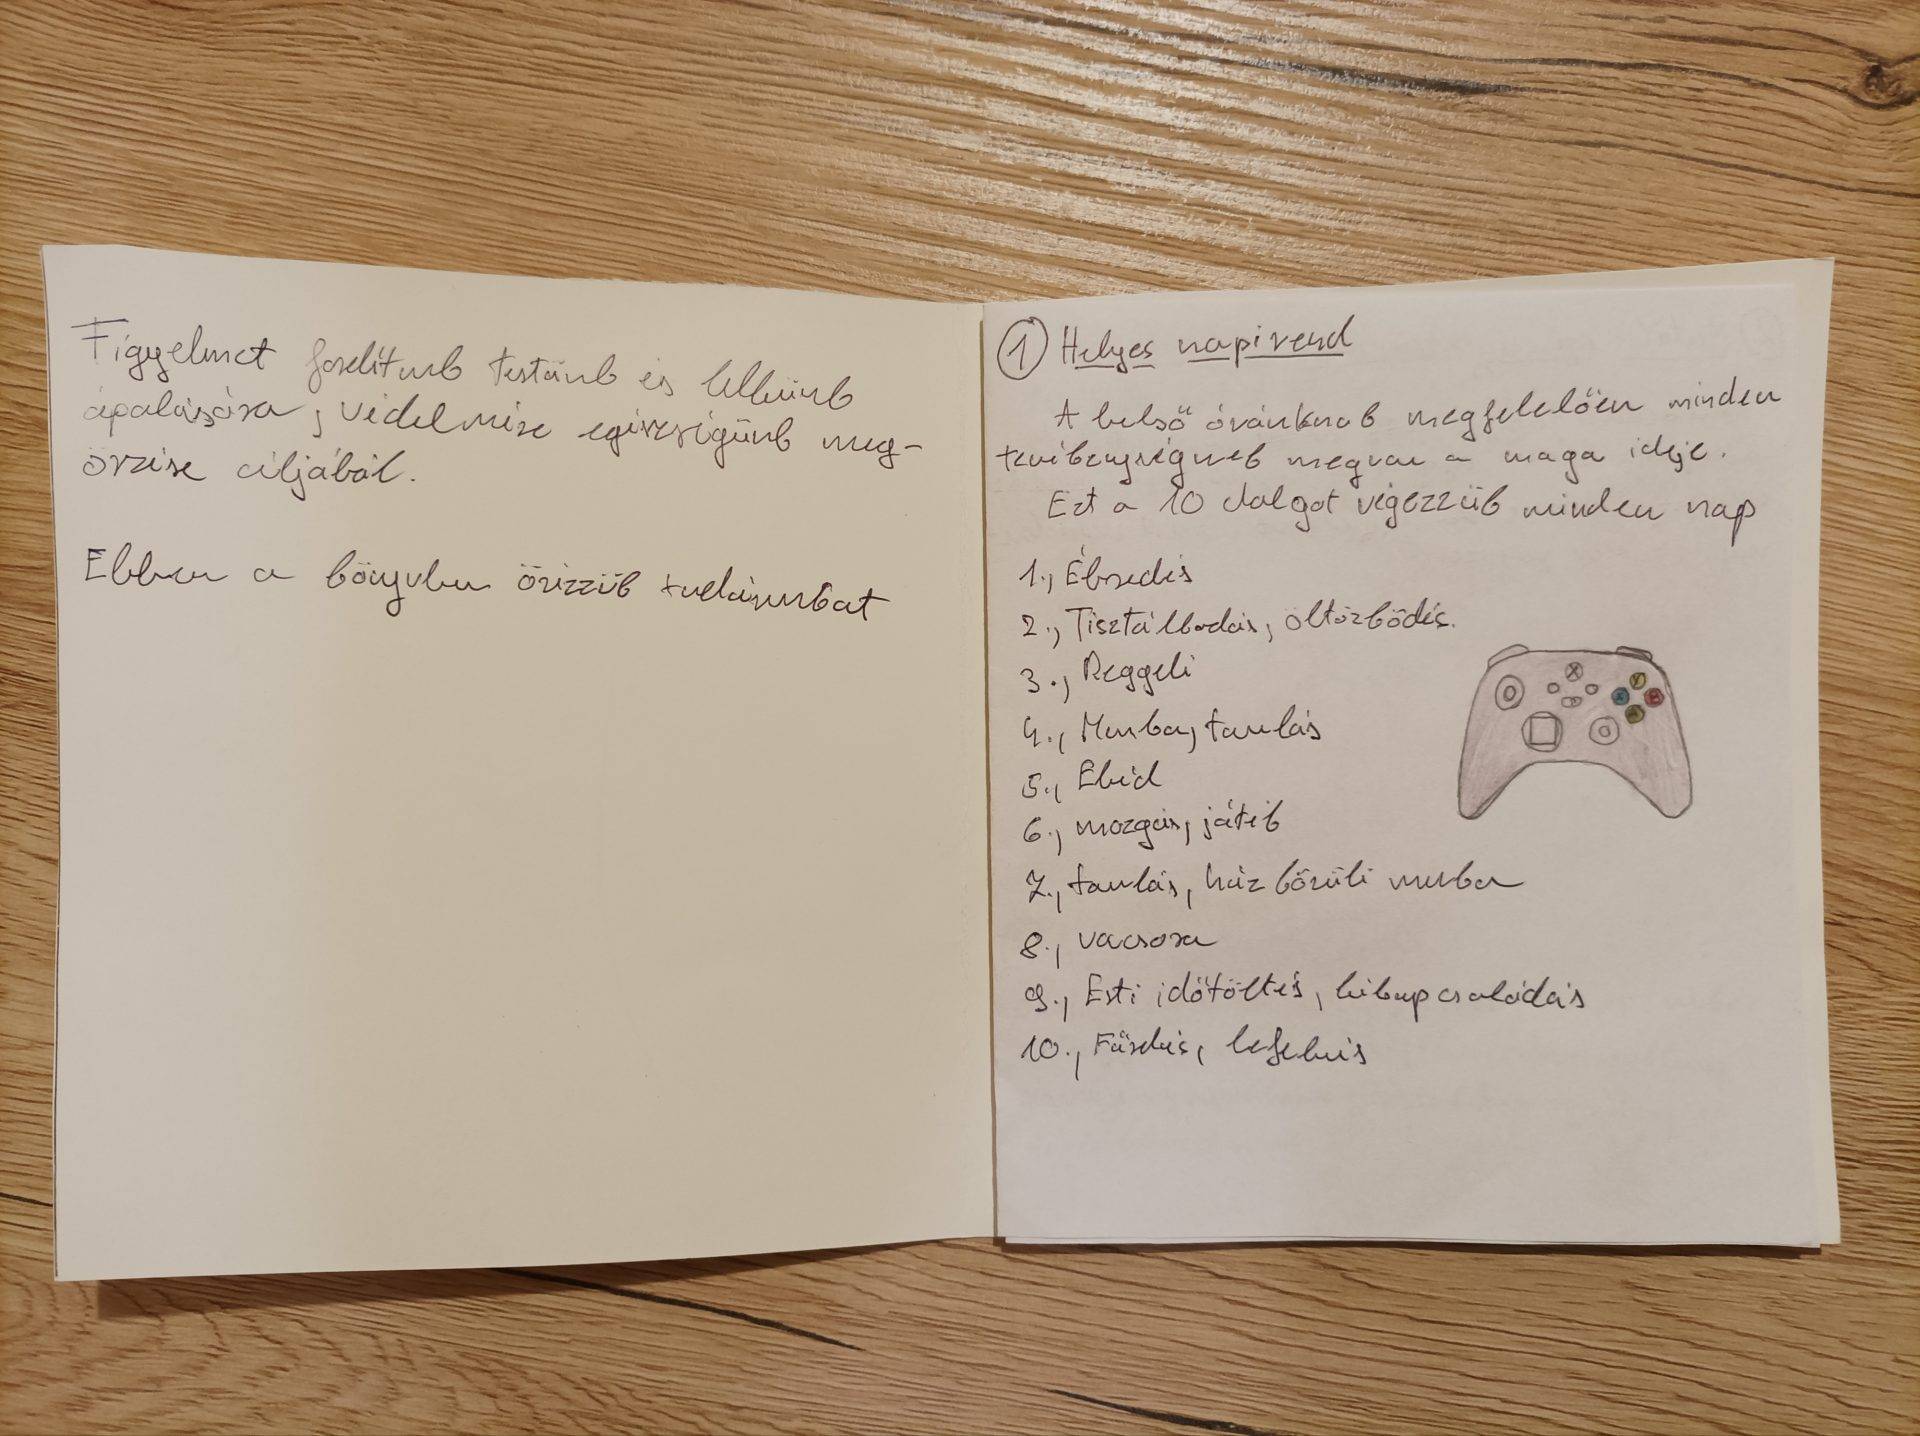 Figyelmet fordítunk testünk és lelkünk
ápolására, védelmére egészségünk meg-
őrzése céljából.
Ebben a könyvben őrizzük tudásunkat
1 Helyes napirend
A belső óránknak megfelelően minden
tevékenységnek megvan a maga ideje.
Ezt a 10 dolgot végezzük minden nap
1., Ébredés
2., Tisztálkodás, öltözködés.
3., Reggeli
4., Munka, tanulás
5., Ebéd
6., mozgás, játék
7., tanulás, ház körüli munka
8., vacsora
9., Esti időtöltés, kikapcsolódás
10., Fürdés, lefekvés
X
Y
X
B
A